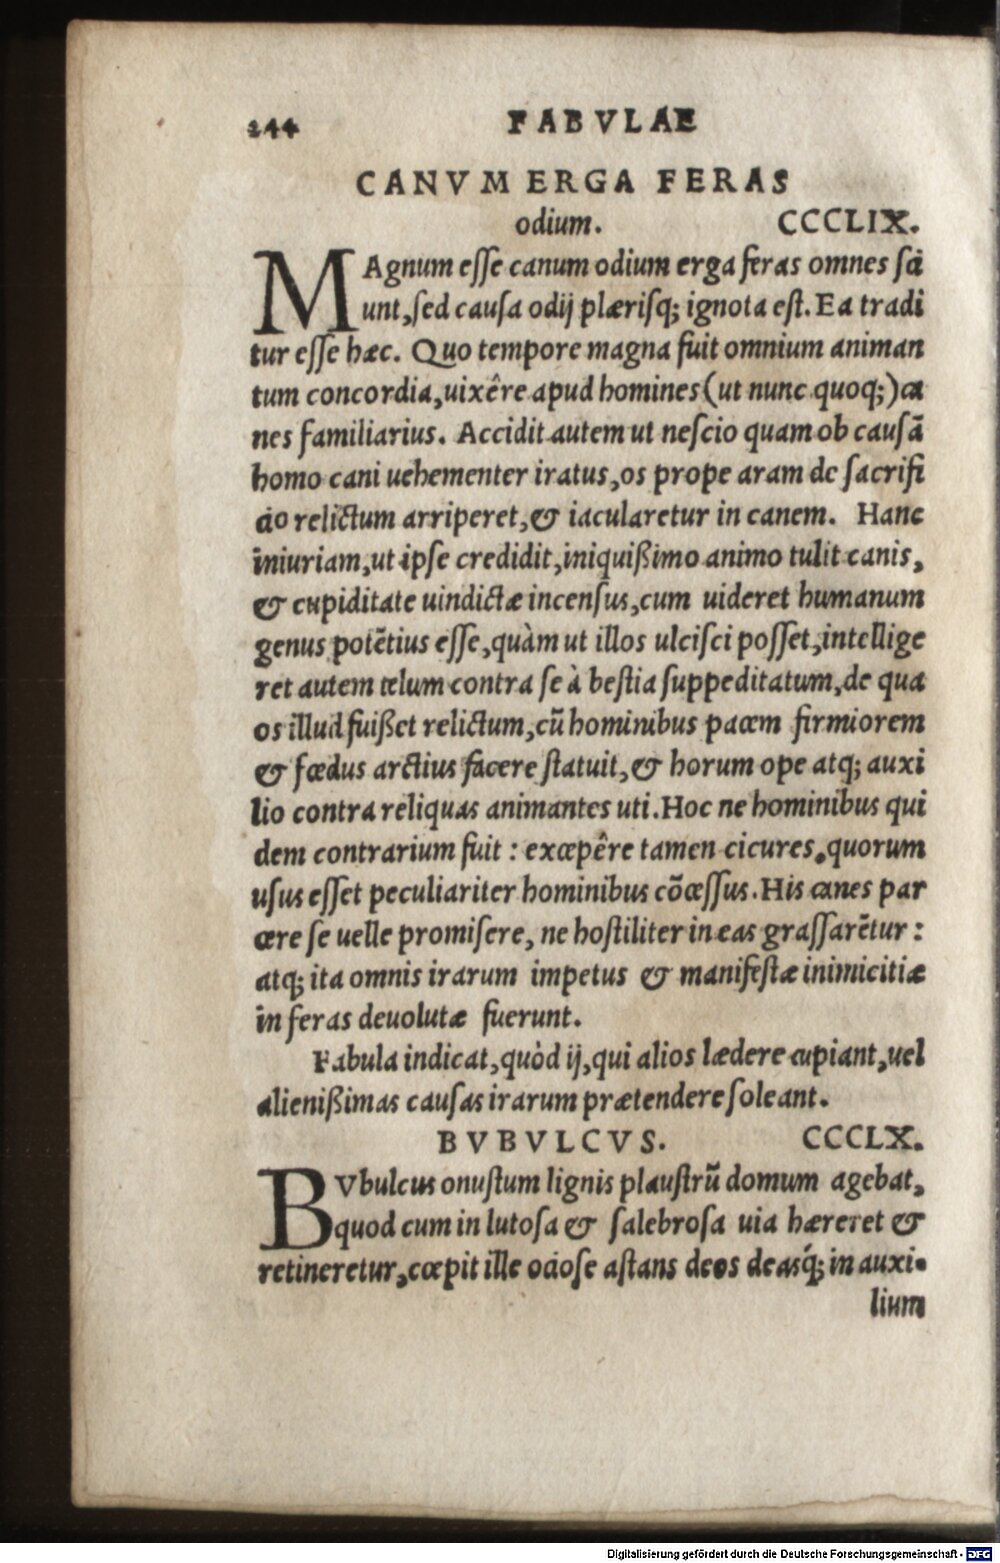 244 FABVLAE
CANVM ERGA FERAS
odium. CCCLIX.
MAgnum eſſe canum odium erga feras omnes ſci
unt, ſed cauſa odij plæriſq; ignota eſt. Ea tradi
tur eſſe hæc. Quo tempore magna fuit omnium animan
tum concordia, uixêre apud homines (ut nunc quoq;) ca
nes familiarius. Accidit autem ut neſcio quam ob cauſã
homo cani uehementer iratus, os prope aram de ſacrifi
cio relictum arriperet, & iacularetur in canem. Hanc
iniuriam, ut ipſe credidit, iniquißimo animo tulit canis,
& cupiditate uindictæ incenſus, cum uideret humanum
genus potẽtius eſſe, quàm ut illos ulciſci poſſet, intellige
ret autem telum contra ſe à beſtia ſuppeditatum, de qua
os illud fuißet relictum, cũ hominibus pacem firmiorem
& fœdus arctius facere ſtatuit, & horum ope atq; auxi
lio contra reliquas animantes uti. Hoc ne hominibus qui
dem contrarium fuit: excepêre tamen cicures, quorum
uſus eſſet peculiariter hominibus cõceſſus. His canes par
cere ſe uelle promiſere, ne hoſtiliter in eas graſſarẽtur:
atq; ita omnis irarum impetus & manifeſtæ inimicitiæ
in feras deuolutæ fuerunt.
Fabula indicat, quòd ij, qui alios lædere cupiant, uel
alienißimas cauſas irarum prætendere ſoleant.
BVBVLCVS. CCCLX.
BVbulcus onuſtum lignis plauſtrũ domum agebat,
quod cum in lutoſa & ſalebroſa uia hæreret &
retineretur, cœpit ille ocioſe aſtans deos deasq́; in auxi-
lium
Digitalisierung gefördert durch die Deutsche Forschungsgemeinschaft - DFG